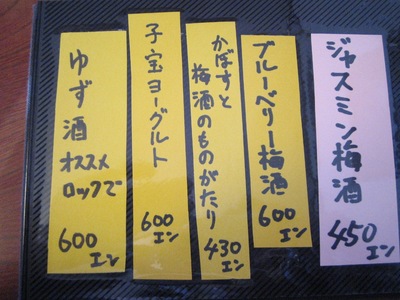 ジャスミン梅酒
450
エン
ブルーベリー梅酒
600
エン
かぼすと
梅酒のものがたり
430
エン
子宝ヨーグルト
600
エン
ゆず酒
オススメ
ロックで
600
エン